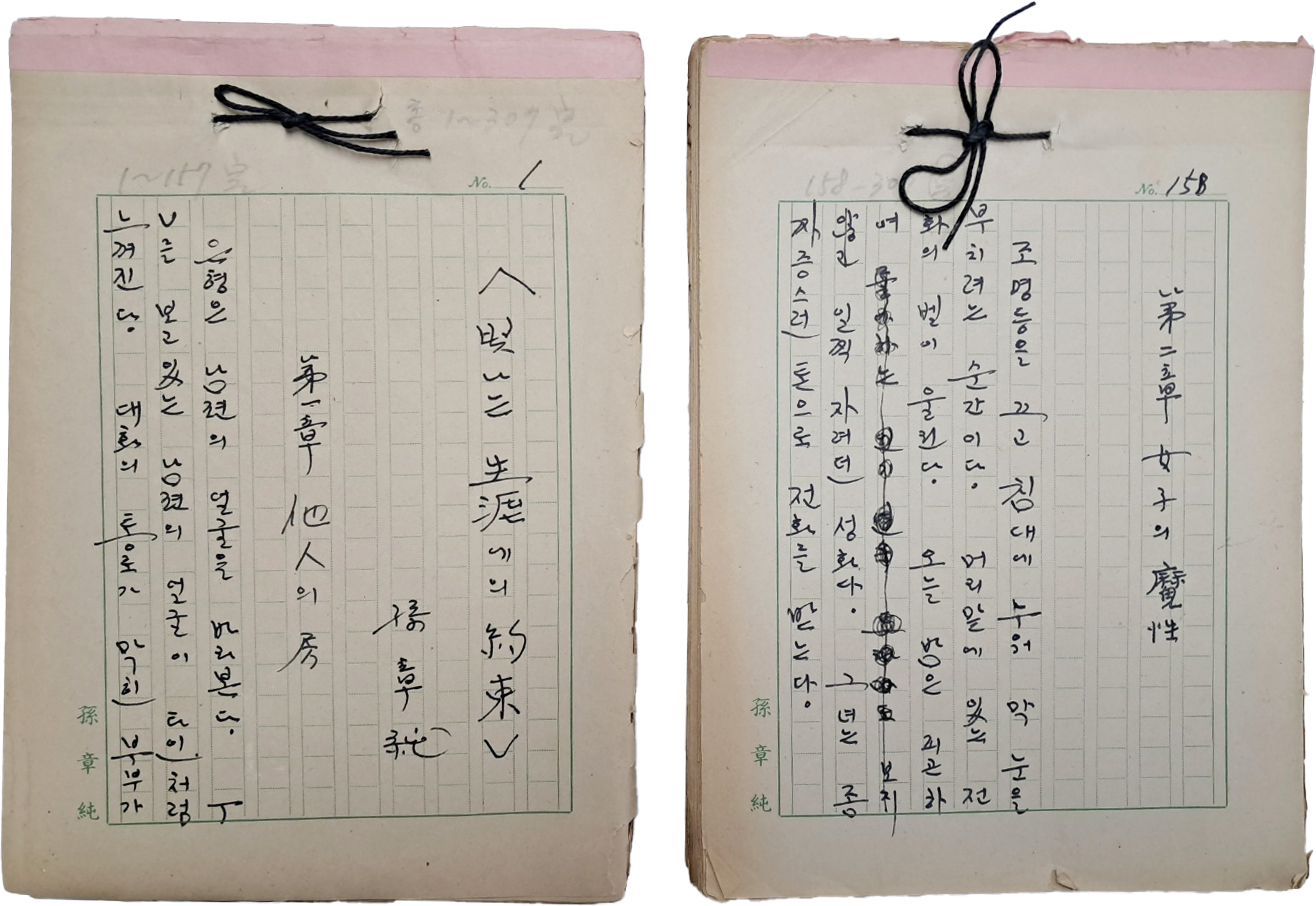 총 1~307
1~157
No. 1
〈빛나는 生涯에의 約束〉
孫章純
第一章 他人의 房
은형은 남편의 얼굴을 바라본다. T
V를 보고 있는 남편의 얼굴이 타인처럼
느껴진다. 대화의 통로가 막힌 부부가
孫章純
No. 158
第二章 女子의 魔性
조명등을 끄고 침대에 누워 막 눈을
부치려는 순간이다. 머리맡에 있는 전
화의 벨이 울린다. 오늘 밤은 피곤하
여 보지
않고 일찍 자려던 성화다. 그녀는 좀
짜증스런 톤으로 전화를 받는다.
孫章純